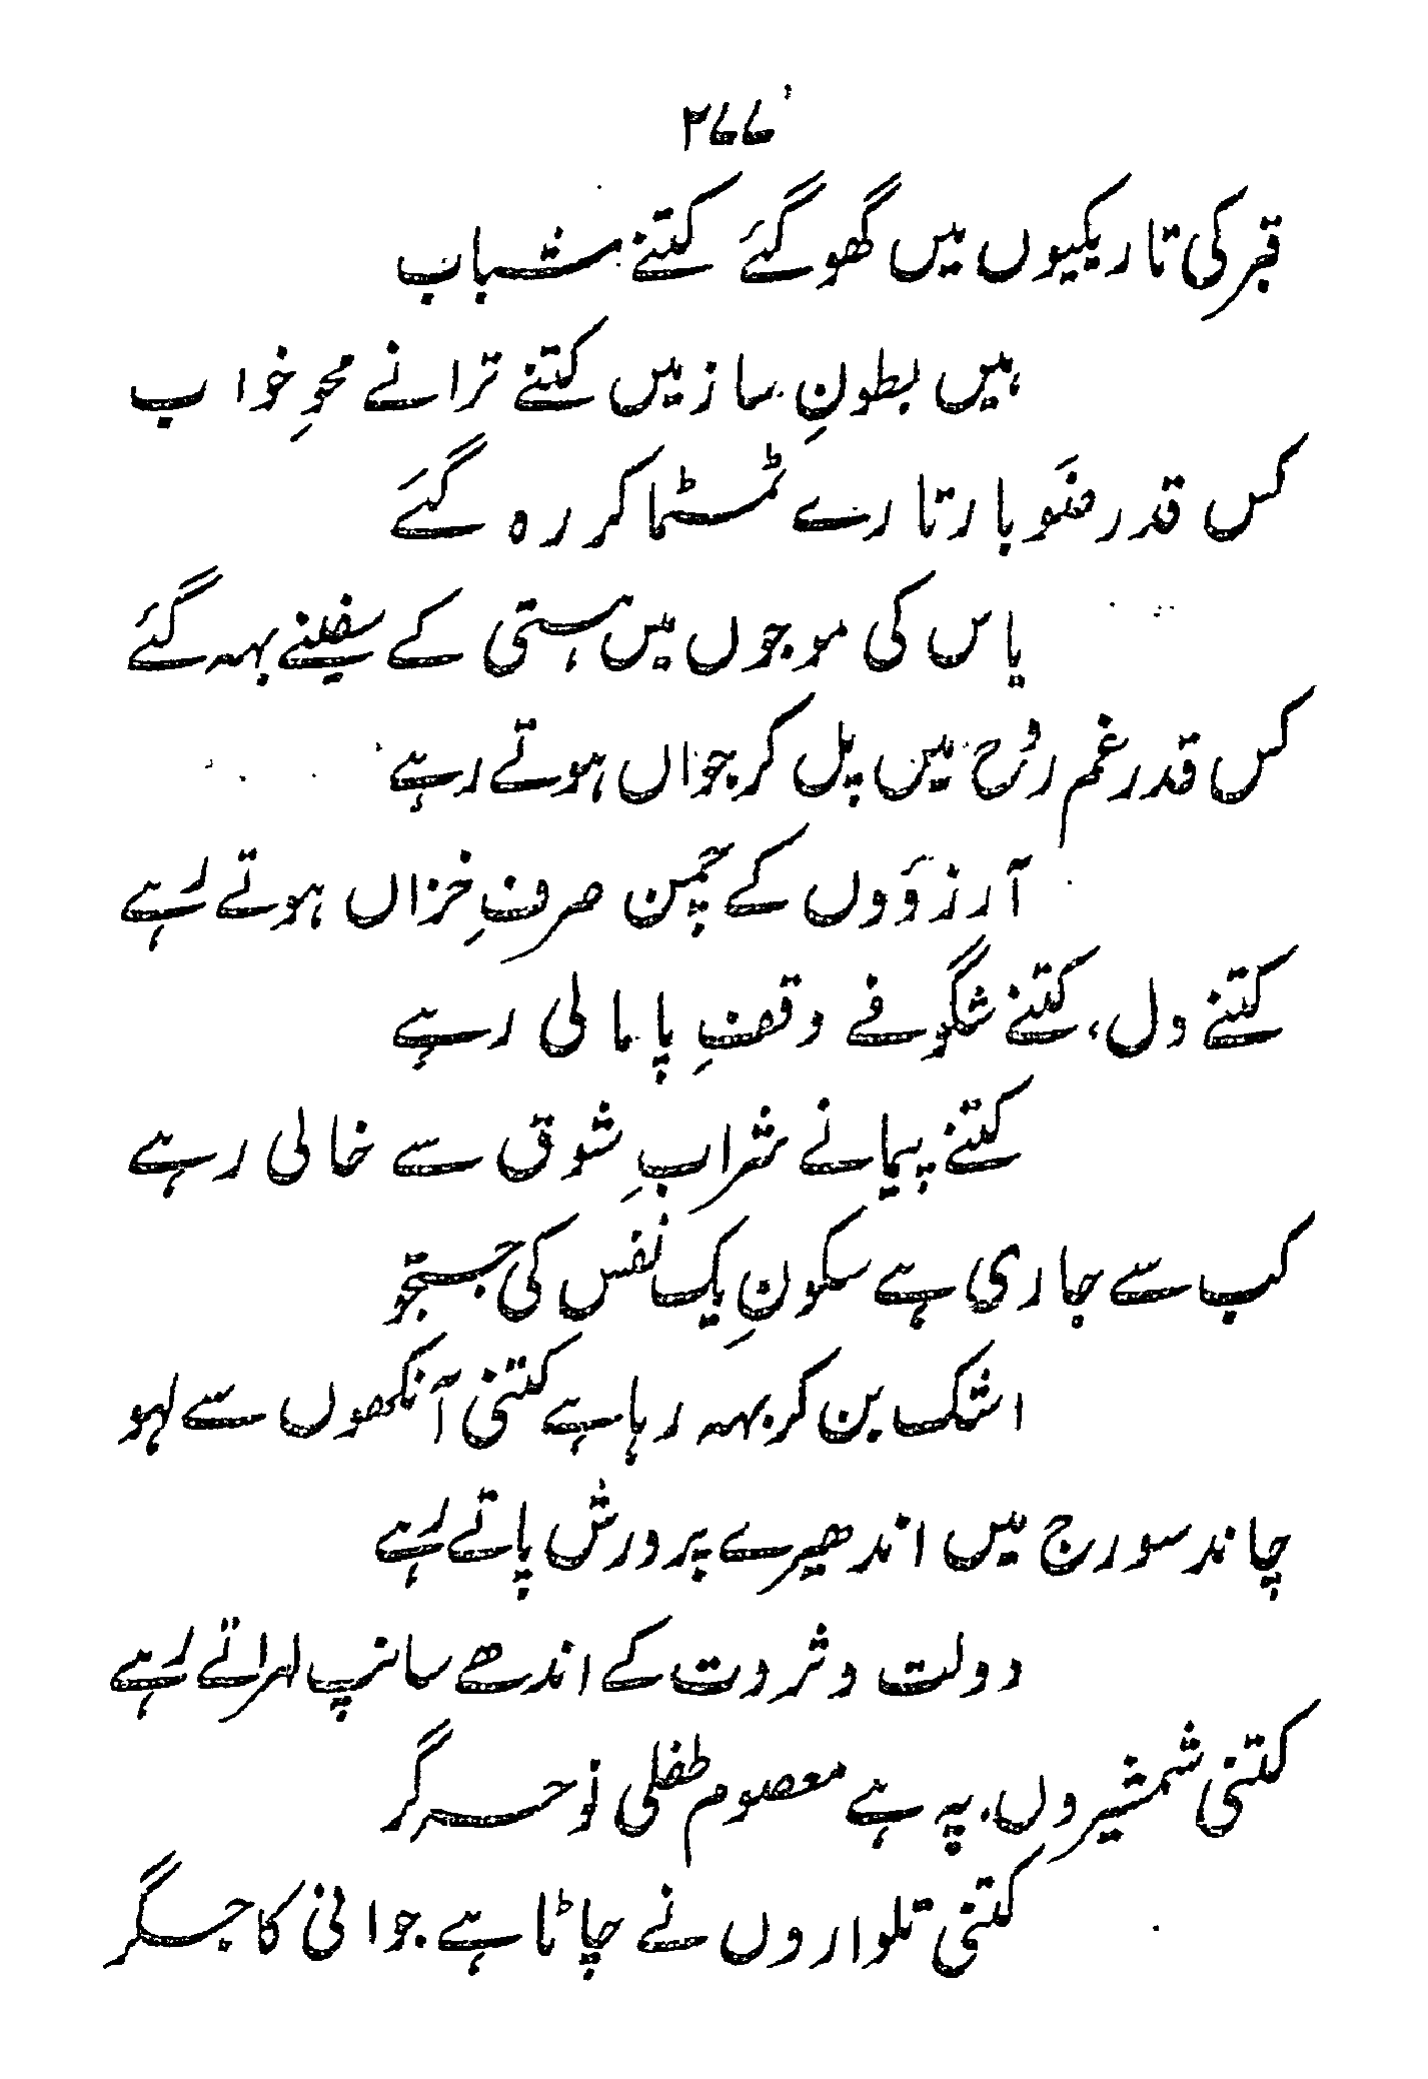 ۲۷۷
قبر کی تاریکیوں میں گھو گئے کتنے شباب
ہیں بطونِ ساز میں کتنے ترانے محوِ خواب
کس قدر ضَو بار تارے ٹمٹما کر رہ گئے
یاس کی موجوں میں ہستی کے سفینے بہہ گئے
کس قدر غم روُح میں پل کر جواں ہوتے رہے
آرزؤوں کے چمن صرفِ خزاں ہوتے رہے
کتنے دل، کتنے شگوفے وقفِ پامالی رہے
کتنے پیمانے شرابِ شوق سے خالی رہے
کب سے جاری ہے سکونِ یک نفس کی جستجو
اشک بن کر بہہ رہا ہے کتنی آنکھوں سے لہو
چاند سورج میں اندھیرے پرورش پاتے رہے
دولت و ثروت کے اندھے سانپ لہراتے رہے
کتنی شمشیروں پہ ہے معصوم طفلی نوحہ گر
کتنی تلواروں نے چاٹا ہے جوانی کا جگر